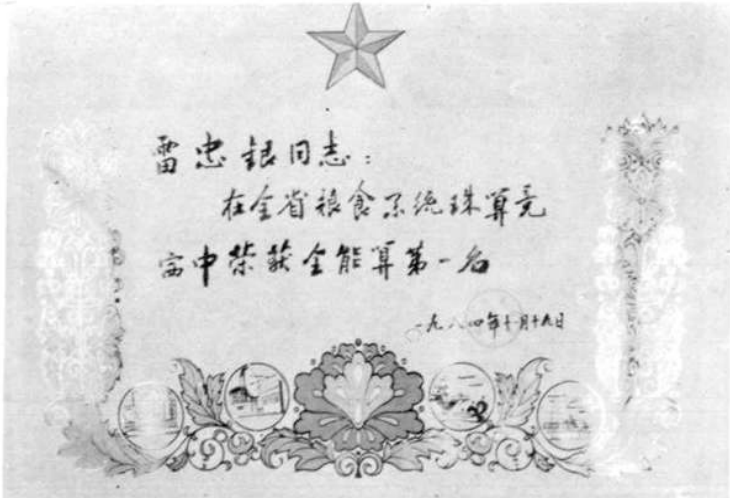 雷忠银同志：
在全省粮食系统珠算竞
赛中荣获全能算第一名
一九八四年十月十九日